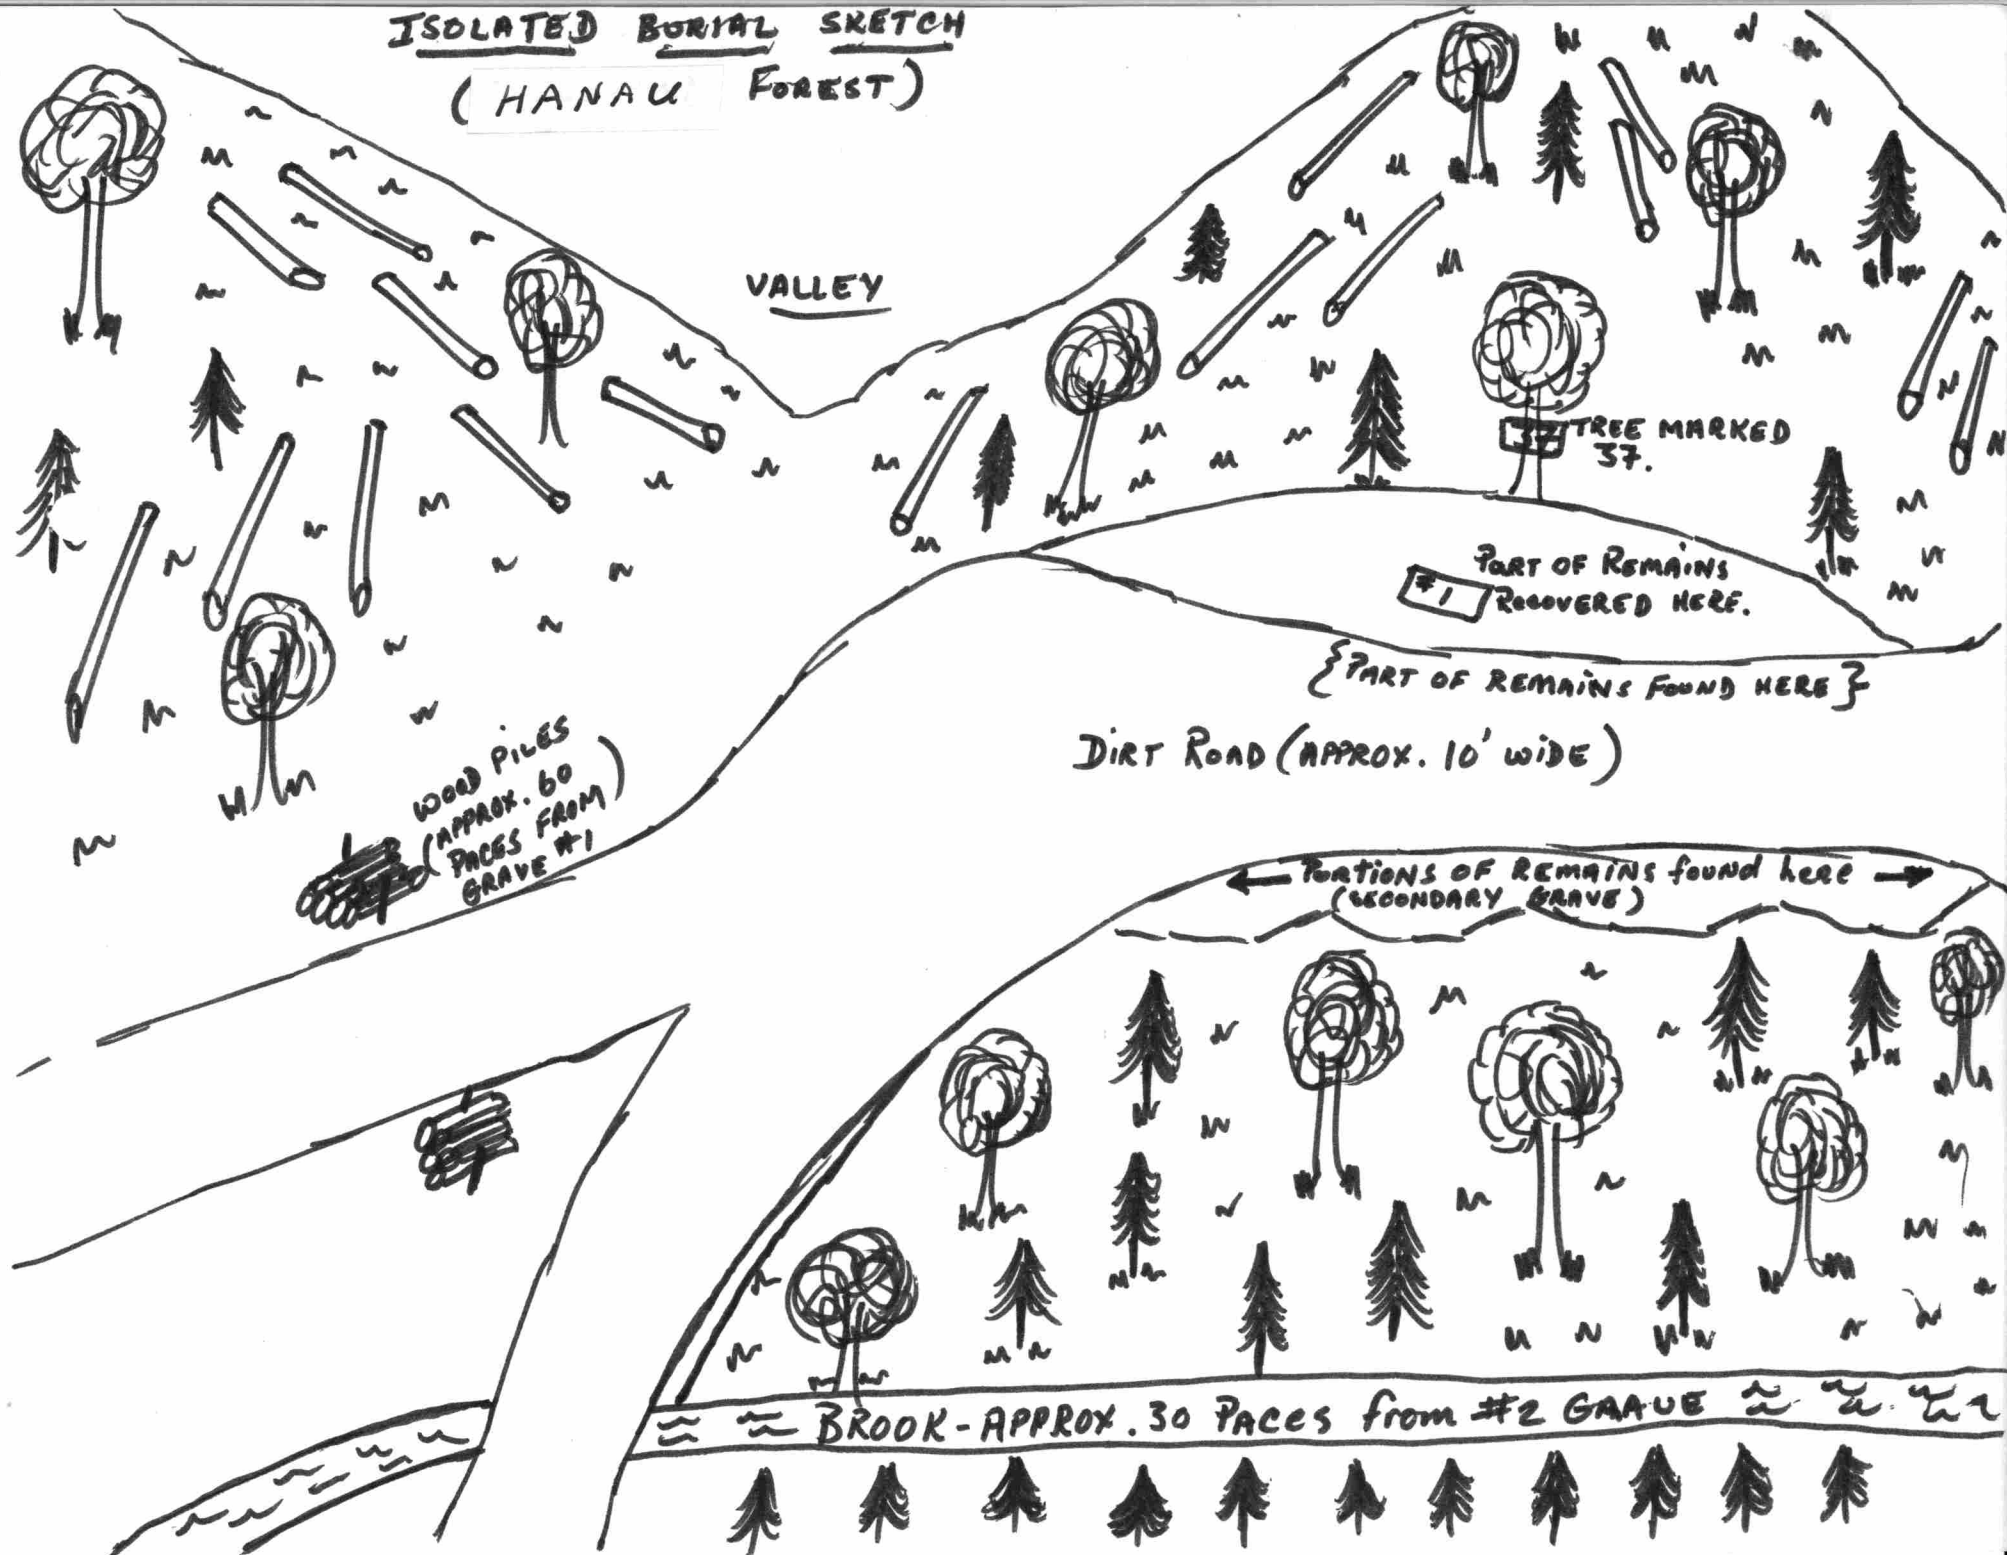 ISOLATED BURIAL SKETCH
(HANAU FOREST)
VALLEY
37
TREE MARKED
37.
PART OF REMAINS
#1 RECOVERED HERE.
{PART OF REMAINS FOUND HERE}
DIRT ROAD (APPROX. 10' WIDE)
WOOD PILES
(APPROX. 60
PACES FROM)
GRAVE #1
← PORTIONS OF REMAINS found here →
(SECONDARY GRAVE)
BROOK - APPROX. 30 PACES from #2 GRAVE